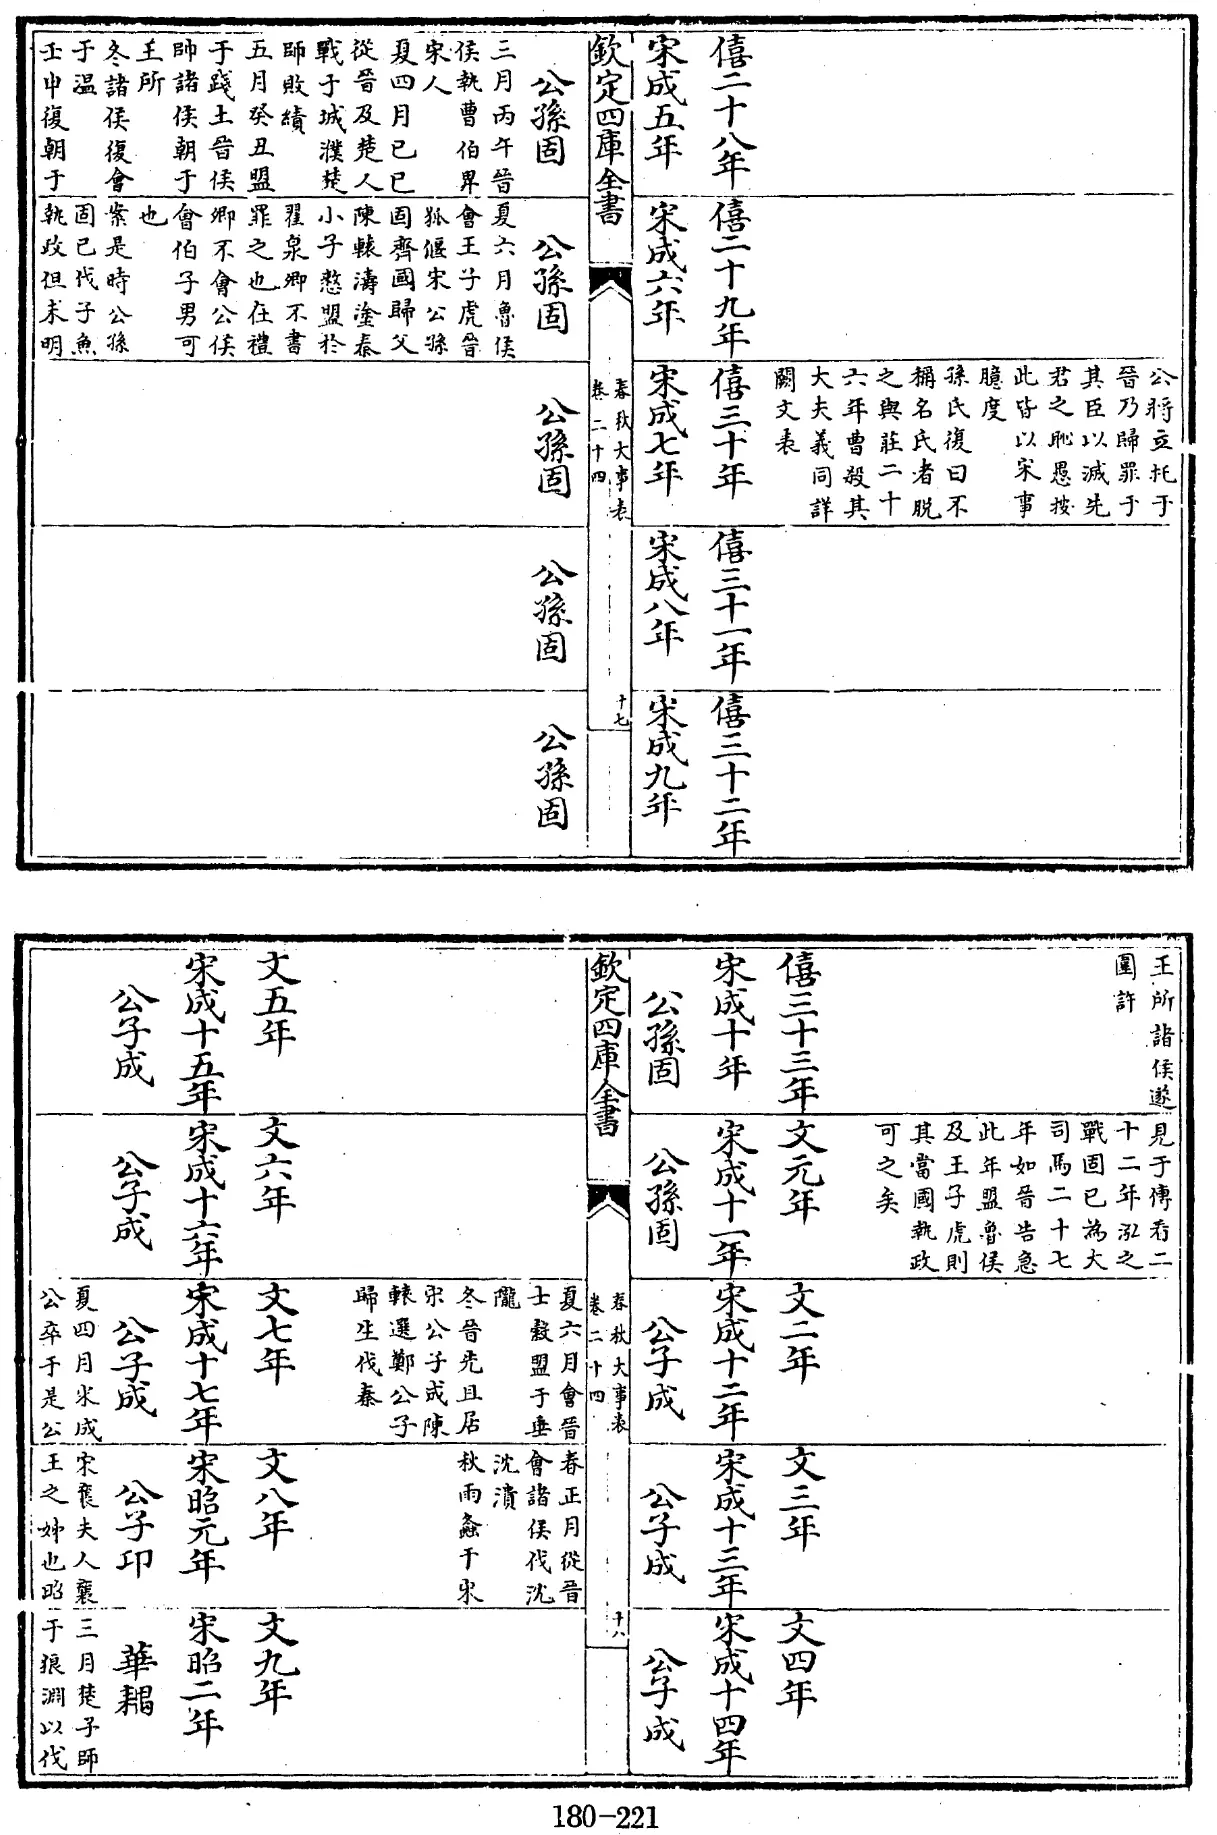 僖二十八年
宋成五年
僖二十九年
宋成六年
公將立托于
晉乃歸罪于
其臣以滅先
君之恥愚按
此皆以宋事
臆度
孫氏復曰不
稱名氏者脫
之與莊二十
六年曹殺其
大夫義同詳
闕文表
僖三十年
宋成七年
僖三十一年
宋成八年
僖三十二年
宋成九年
欽定四庫全書
春秋大事表
卷二十四
十七
公孫固
三月丙午晉
侯執曹伯畀
宋人
夏四月己巳
從晉及楚人
戰于城濮楚
師敗績
五月癸丑盟
于踐土晉侯
帥諸侯朝于
王所
冬諸侯復會
于溫
壬申復朝于
公孫固
夏六月魯侯
會王子虎晉
狐偃宋公孫
固齊國歸父
陳轅濤塗秦
小子憖盟於
翟泉卿不書
罪之也在禮
卿不會公侯
會伯子男可
也
案是時公孫
固已代子魚
執政但未明
公孫固
公孫固
公孫固
王所諸侯遂
圍許
僖三十三年
宋成十年
公孫固
見于傳看二
十二年泓之
戰固已為大
司馬二十七
年如晉告急
此年盟魯侯
及王子虎則
其當國執政
可之矣
文元年
宋成十一年
公孫固
文二年
宋成十二年
公子成
文三年
宋成十三年
公子成
文四年
宋成十四年
公子成
欽定四庫全書
春秋大事表
卷二十四
十八
文五年
宋成十五年
公子成
文六年
宋成十六年
公子成
夏六月會晉
士縠盟于垂
隴
冬晉先且居
宋公子成陳
轅選鄭公子
歸生伐秦
文七年
宋成十七年
公子成
夏四月宋成
公卒于是公
春正月從晉
會諸侯伐沈
沈潰
秋雨螽于宋
文八年
宋昭元年
公子卬
宋襄夫人襄
王之姊也昭
文九年
宋昭二年
華耦
三月楚子師
于狼淵以伐
180-221